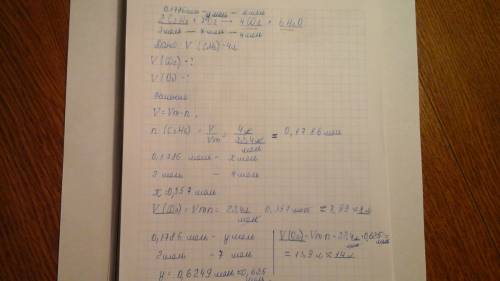 0,1786 моль — y моль — x моль
2C₂H₆ + 7O₂ → 4CO₂ + 6H₂O
2 моль — 7 моль — 4 моль
Дано: V (C₂H₆) = 4л
V (CO₂) = ?
V (O₂) = ?
Решение
V = Vm · n,
n (C₂H₆) = V/Vm = 4 л / 22,4 л/моль = 0,1786 моль
0,1786 моль — x моль
2 моль — 4 моль
x = 0,357 моль
V (CO₂) = Vm·n = 22,4 л/моль · 0,357 моль = 7,99 ≈ 8 л
0,1786 моль — y моль
2 моль — 7 моль
y = 0,6249 моль ≈ 0,625 моль
V (O₂) = Vm · n = 22,4 л/моль · 0,625 моль =
= 13,9 л ≈ 14 л